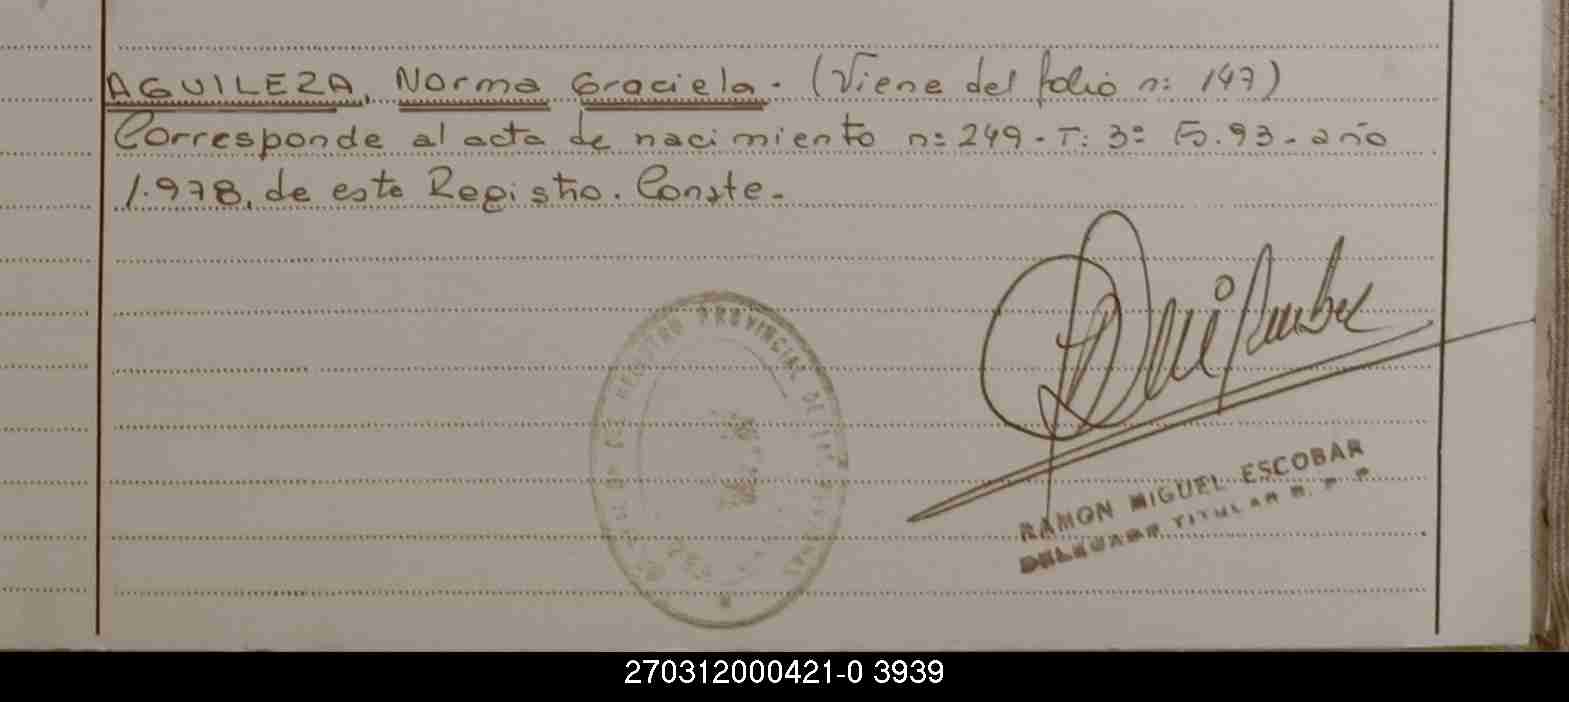 AGUILEZA, Norma Graciela. (Viene del folio n: 147)
Corresponde al acta de nacimiento n: 249 - T: 3: F. 93 - año
1.978, de este Registro. Conste.-
REGISTRO PROVINCIAL DE LAS
RAMON MIGUEL ESCOBAR
DELEGADO TITULAR R. P. P.
270312000421-0 3939